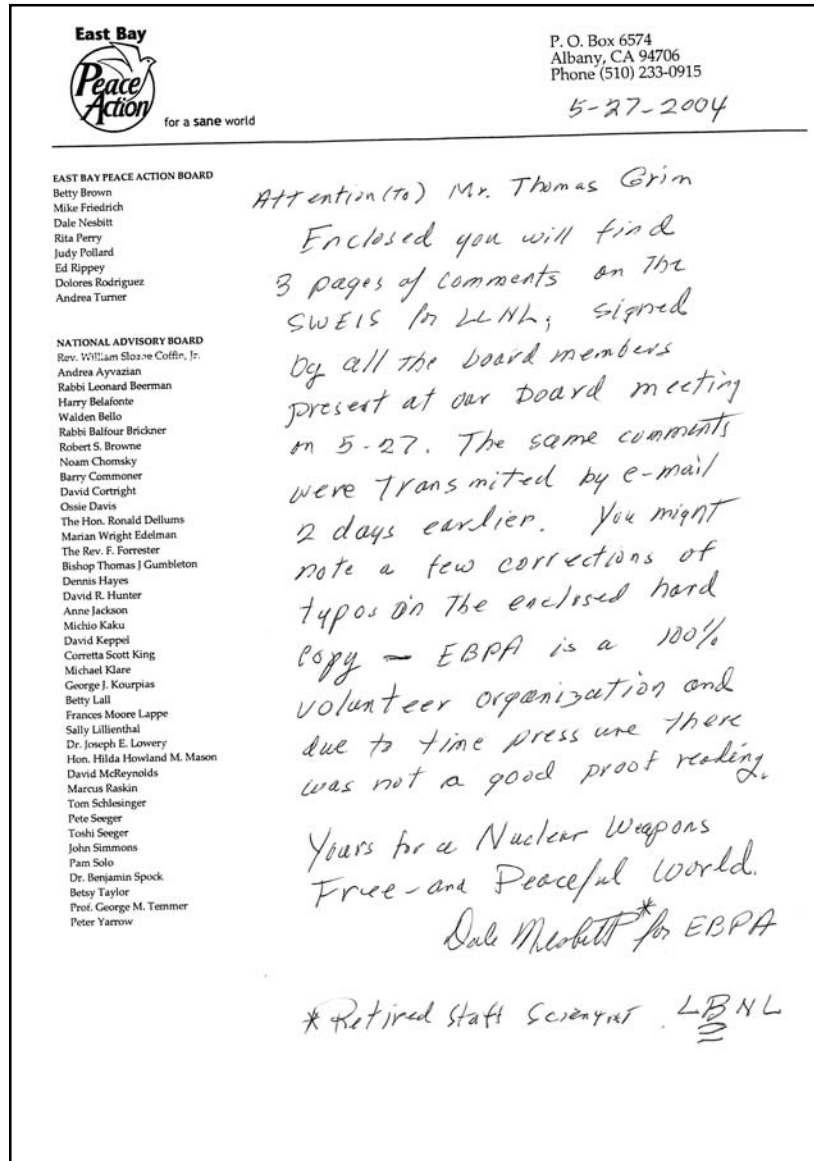 East Bay
Peace
Action
for a sane world
P. O. Box 6574
Albany, CA 94706
Phone (510) 233-0915
5-27-2004
EAST BAY PEACE ACTION BOARD
Betty Brown
Mike Friedrich
Dale Nesbitt
Rita Perry
Judy Pollard
Ed Rippey
Dolores Rodriguez
Andrea Turner
NATIONAL ADVISORY BOARD
Rev. William Sloane Coffin, Jr.
Andrea Ayvazian
Rabbi Leonard Beerman
Harry Belafonte
Walden Bello
Rabbi Balfour Brickner
Robert S. Browne
Noam Chomsky
Barry Commoner
David Cortright
Ossie Davis
The Hon. Ronald Dellums
Marian Wright Edelman
The Rev. F. Forrester
Bishop Thomas J Gumbleton
Dennis Hayes
David R. Hunter
Anne Jackson
Michio Kaku
David Keppel
Corretta Scott King
Michael Klare
George J. Kourpias
Betty Lall
Frances Moore Lappe
Sally Lillienthal
Dr. Joseph E. Lowery
Hon. Hilda Howland M. Mason
David McReynolds
Marcus Raskin
Tom Schlesinger
Pete Seeger
Toshi Seeger
John Simmons
Pam Solo
Dr. Benjamin Spock
Betsy Taylor
Prof. George M. Temmer
Peter Yarrow
Attention (to) Mr. Thomas Grim
Enclosed you will find
3 pages of comments on the
SWEIS for LLNL; signed
by all the board members
present at our board meeting
on 5-27. The same comments
were transmited by e-mail
2 days earlier. You might
note a few corrections of
typos in the enclosed hard
copy — EBPA is a 100%
volunteer organization and
due to time pressure there
was not a good proof reading.
Yours for a Nuclear Weapons
Free - and Peaceful World.
Dale Nesbitt* for EBPA
* Retired Staff Scientist LBNL